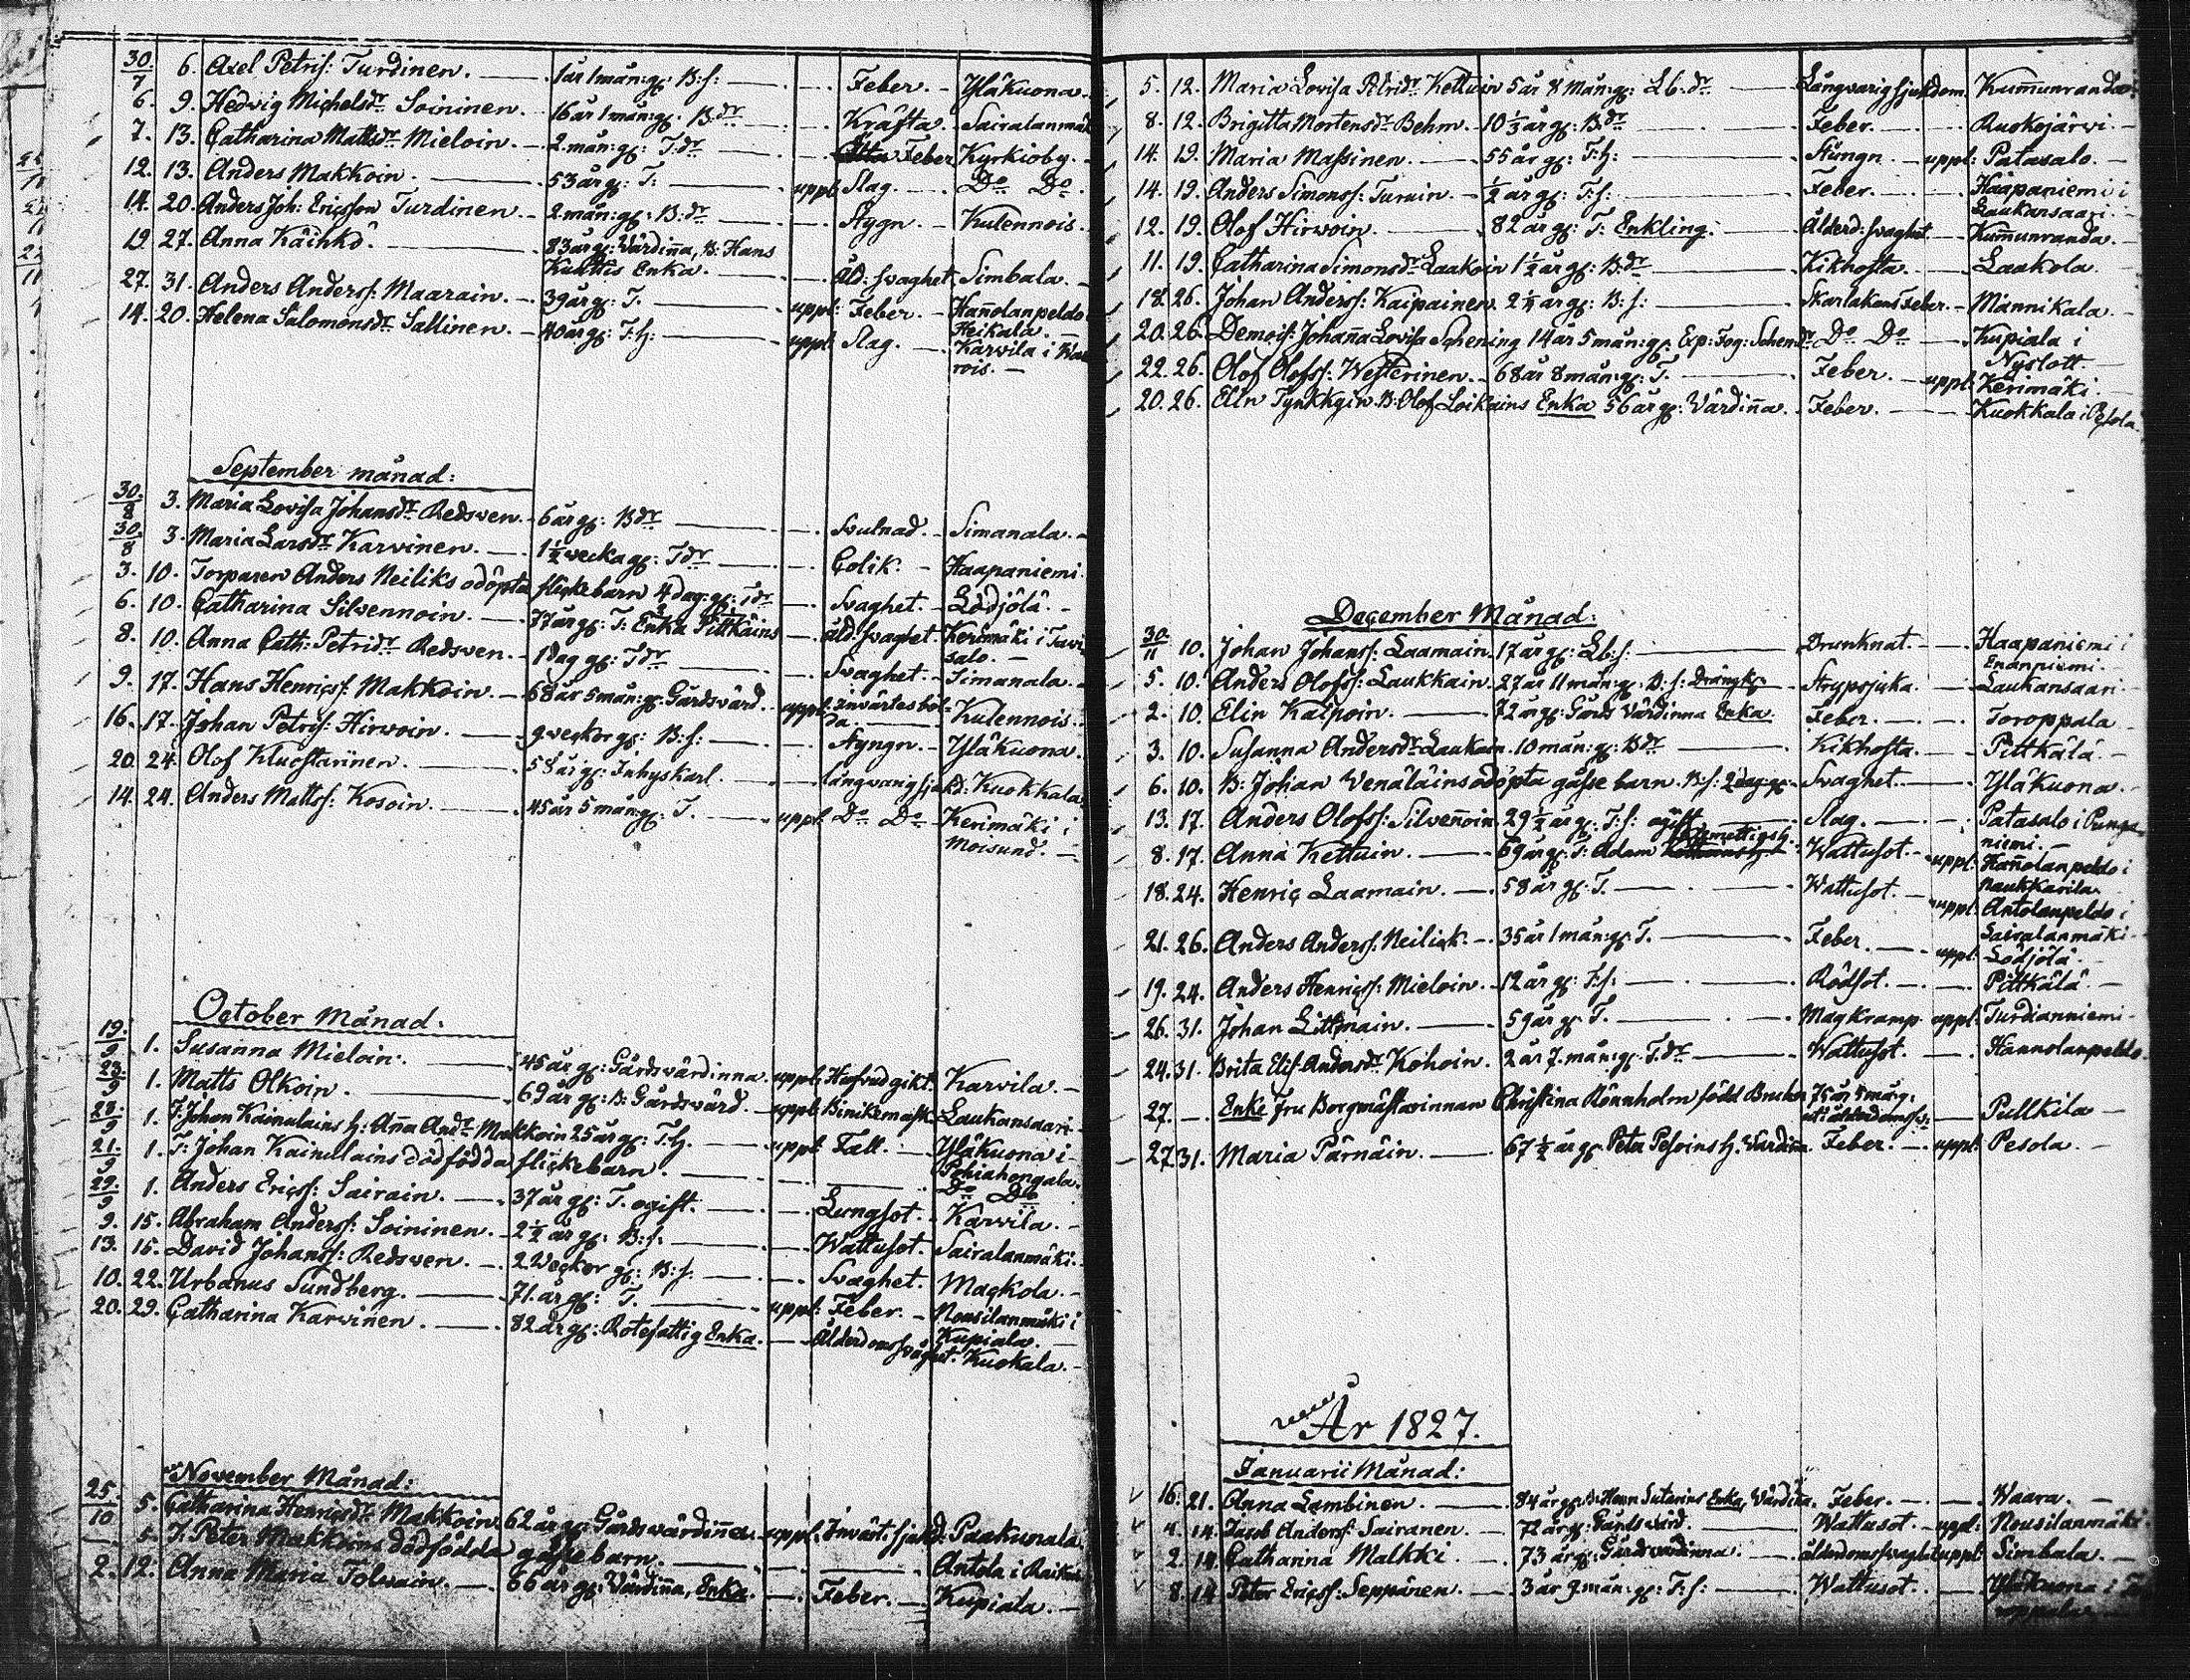 30/7 6. Axel Petris: Turdinen. 1 år 1 mån: gl: B:s: Feber. Yläkuona.
6. 9. Hedvig Michelsdr Soininen. 16 år 1 mån: gl: B:dr Kräfta. Sairalanmä
7. 13. Catharina Mattsdr Mieloin. 2 mån: gl: T:dr Feber Kyrkioby.
12. 13. Anders Makkoin. 53 år gl: T: uppl: Slag. Do Do.
14. 20. Anders Joh: Ericsson Turdinen. 2 mån: gl: B:dr Stygn. Kulennois.
19. 27. Anna Käihkö. 83 år gl: Värdinna, B: Hans
Kuhtis Enka. Åld: svaghet Simbala.
27. 31. Anders Anderss: Maarain. 39 år gl: T. uppl: Feber. Hannolanpeldo
Heikala.
14. 20. Helena Salomonsdr Sallinen. 40 år gl: T:h: uppl: Slag. Karvila i
rois.
September månad:
30/8 3. Maria Lovisa Johansdr Redsven. 6 år gl: Bdr Svulnad. Simanala.
30/8 3. Maria Larsdr Karvinen. 1½ vecka gl: Tdr Colik. Haapaniemi.
3. 10. Torparen Anders Neiliks odöpta flickebarn 4 dag: gl: Tdr Svaghet. Lödjölä.
6. 10. Catharina Silvennoin. 77 år gl: T: Enka Pittkäins åld: svaghet. Kerimäki i Tavi
salo.
8. 10. Anna Cath: Petridr Redsven. 1 dag gl: Tdr Svaghet. Simanala.
9. 17. Hans Henricss: Makkoin. 68 år 5 mån: gl: Gårdsvärd. uppl: invärtes böl-
da. Kulennois.
16. 17. Johan Petris: Hirvoin. 9 veckor gl: B:s: Styngn. Yläkuona.
20. 24. Olof Kluustarinen. 58 år gl: Inhyskarl. långvarig sjukd: Kuokkala
14. 24. Anders Mattss: Kosoin. 45 år 5 mån: gl: T. uppl: Do Do Kerimäki i
Moisund.
October Månad:
19/9 1. Susanna Mieloin. 45 år gl: Gårdsvärdinna. uppl: Hufvud gikt. Karvila.
23/9 1. Matts Olkoin. 69 år gl: B: Gårdsvärd. uppl: Binikemask. Laukansaari.
28/9 1. T: Johan Kainulains h: Anna Andr Makkoin 25 år gl: T:h. uppl: Fall. Yläkuona i
Pohiahongala.
21/9 1. T: Johan Kainulains dödfödda flickebarn. Do Do
29/9 1. Anders Ericss: Sairain. 37 år gl: T. ogift. Lungsot. Karvila.
9. 15. Abraham Anderss: Soininen. 2½ år gl: B:s: Wattusot. Sairalanmäki.
13. 15. David Johanss: Redsven. 2 Veckor gl: B:s. Svaghet. Mackola.
10. 22. Urbanus Sundberg. 71. år gl: T. uppl: Feber. Nousilanmäki i
Kupiala.
20. 29. Catharina Karvinen. 82 år gl: Rotefattig Enka. Ålderdoms svaghet. Kuokala.
November Månad:
25/10 5. Catharina Henricsdr Makkoin. 62 år gl: Gårdsvärdinna. uppl: Invärt: sjukd: Paakunala
5. T: Peter Makkoins dödfödda gåssebarn. Antola i
2. 12. Anna Maria Tolvain. 66 år gl: Värdinna, Enka. Feber. Kupiala.
5. 12. Maria Lovisa Petridr Kettuin 5 år 8 mån: gl: Lb. dr Långvarig sjukdom. Kummunranda
8. 12. Brigitta Mortensdr Behm. 10⅓ år gl: B:dr Feber. Ruokojärvi.
14. 19. Maria Massinen. 55 år gl: T:h: Stungn. uppl: Patasalo.
14. 19. Anders Simonss: Turuin. ½ år gl: T:s: Feber. Haapaniemi i
Laukansaari.
12. 19. Olof Hirvoin. 82 år gl: T: Enkling. Ålderd: svaghet Kummunranda.
11. 19. Catharina Simonsdr Laakoin 1½ år gl: B:dr Kikhosta. Laakola.
18. 26. Johan Anderss: Kaipainen 2¼ år gl: B:s: Skarlakans Feber. Männikala.
20. 26. Demois: Johanna Lovisa Schening 14 år 5 mån: gl: Exp: Fog: Schen:dr Do Do Kupiala i
Nyslott.
22. 26. Olof Olofss: Westerinen. 68 år 8 mån: gl: T. Feber. uppl: Kerimäki.
20. 26. Elin Tynkkyin. B: Olof Loikains Enka 56 år gl: Värdinna. Feber. Kuokkala i Pesola.
December Månad:
30/11 10. Johan Johanss: Laamain. 17 år gl: Lb:s: Drunknat. Haapaniemi i
Enanniemi.
5. 10. Anders Olofss: Laukkain. 27 år 11 mån: gl: B:s: Dräng Strypsjuka. Laukansaari.
2. 10. Elin Kalpoin. 72 år gl: Gårds Värdinna Enka Feber. Toroppala
3. 10. Susanna Andersdr Laukain. 10 mån: gl: Bdr Kikhosta. Pittkälä.
6. 10. B: Johan Venäläins odöpta gåsse barn. B:s: 2 dag: gl: Svaghet. Yläkuona.
13. 17. Anders Olofss: Silvennoin 29½ år gl: T:s: ogift Slag. Patasalo i Punga
niemi.
8. 17. Anna Kettuin. 69 år gl: T: Adam Wattusot. uppl: Hannolanpeldo i
Naukkarila.
18. 24. Henric Laamain. 58 år gl: T. Wattusot. uppl: Antolanpeldo i
Sairalanmäki.
21. 26. Anders Anderss: Neilick. 35 år 1 mån: gl: T. Feber. uppl: Lödjölä.
19. 24. Anders Henricss: Mieloin. 12 år gl: T:s: Rödsot. Pittkälä.
26. 31. Johan Littmain. 59 år gl: T. Magkramp uppl: Turdianniemi
24. 31. Brita Elis: Andersdr Kohoin. 2 år 7. mån: gl: T:dr Wattusot. Hannolanpeldo.
27. Enke Fru Borgmästarinnan Christina Rönnholm född 75 år
Pullkila
27. 31. Maria Pärnäin. 67½ år gl: Petr Pesoins h. Värdinna Feber. uppl: Pesola.
År 1827.
Januarii Månad:
16. 21. Anna Lambinen. 84 år gl: Enka, Värdinna. Feber. Waara.
4. 14. Jacob Anderss: Sairanen. 72 år gl: Gårdsvärd. Wattusot uppl: Nousilanmäki.
2. 14. Catharina Malkki. 73 år gl: Gårdsvärdinna. ålderdoms svaghet uppl: Simbala.
8. 14. Peter Ericss: Seppänen. 3 år 9 mån: gl: T:s: Wattusot. Yläkuona i